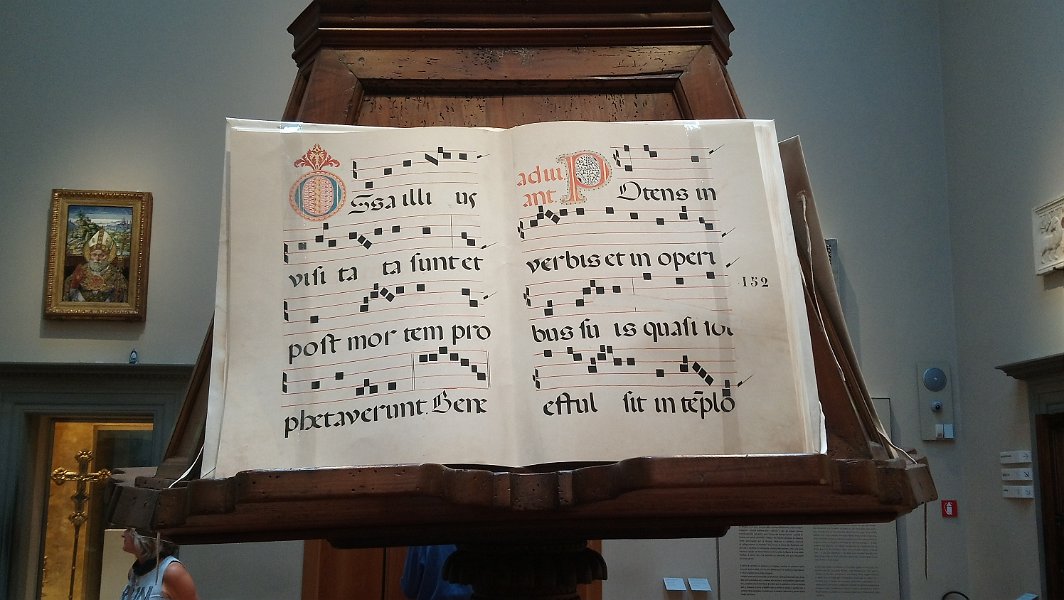 Ossa illi us
visi ta ta sunt et
post mor tem pro
phetaverunt. Bene
adiu
ant.
Potens in
verbis et in operi
bus su is quasi sol
effulsit in tēplo
152